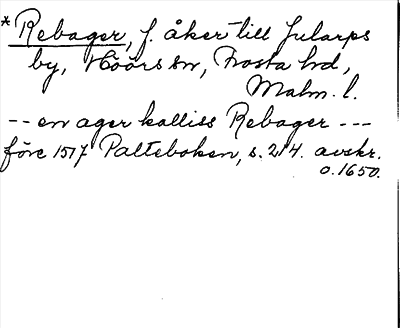 * Rebager, f. åker till Jularps
by, Höörs sn, Frosta hd,
Malm. l.
-- en ager kalliss Rebager ---
före 1517 Palteboken, s. 214. avskr.
o. 1650.